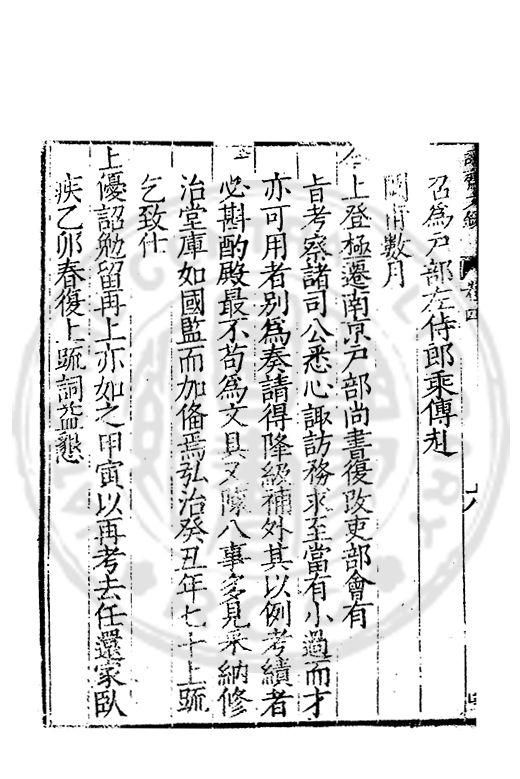 召為戸部左侍郎乘傳赴
闕甫數月
今
上登極遷南京戸部尚書復改吏部會有
旨考察諸司公悉心諏訪務求至當有小過而才
亦可用者別為奏請得降級補外其以例考績者
必斟酌殿最不苟為文具又陳八事多見采納修
治堂庫如國監而加偹焉弘治癸丑年七十上䟽
乞致仕
上優詔勉留再上亦如之甲寅以再考去任還家臥
疾乙卯春復上䟽詞益懇